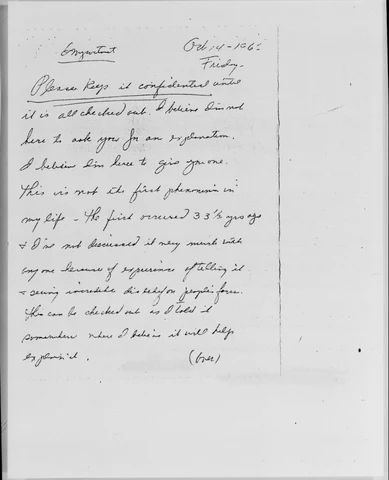 Oct 14 - 196
Friday
Please keep it confidential until
it is all checked out. I believe I'm not
here to ask you for an explanation.
I believe I'm here to give you one.
This is not the first phenomin in
my life - The first occurred 33 1/2 yrs ago
& I've not discussed it very much with
anyone because of experience of telling it
& seeing incredible disbelief on people's faces.
This can be checked out as I told it
somewhere where I believe it will help
explain it. (Over)